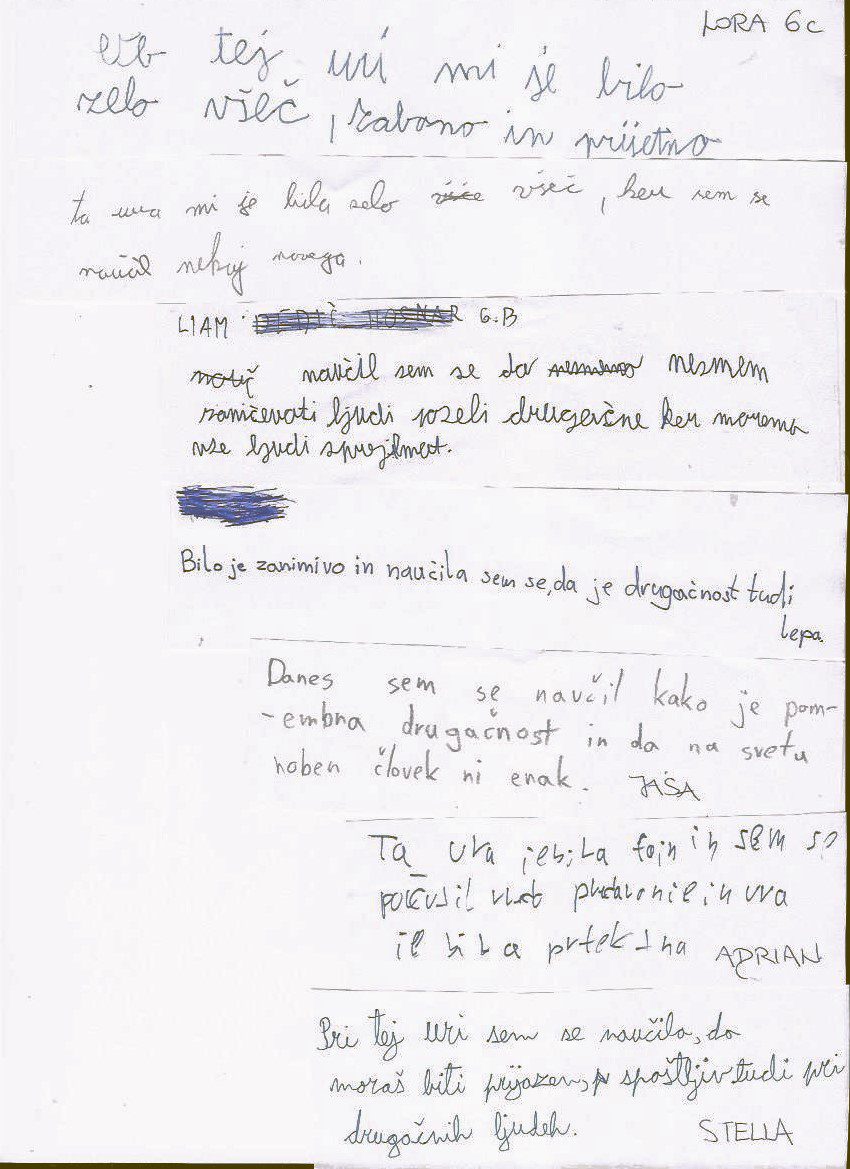 LORA 6c
Ob tej uri mi je bilo
zelo všeč, zabavno in prijetno
ta ura mi je bila zelo všeč, ker sem se
naučil nekaj novega.
LIAM 6.B
naučil sem se da nesmem
zaničevati ljudi drugačne ker moremo
vse ljudi sprejemat.
Bilo je zanimivo in naučila sem se, da je drugačnost tudi
lepa.
Danes sem se naučil kako je pom-
-embna drugačnost in da na svetu
noben človek ni enak. JAŠA
Ta ura je bila fajn in sem se
in ura
je bila ADRIAN
Pri tej uri sem se naučila, da
moraš biti prijazen, spoštljiv tudi pri
drugačnih ljudeh. STELLA